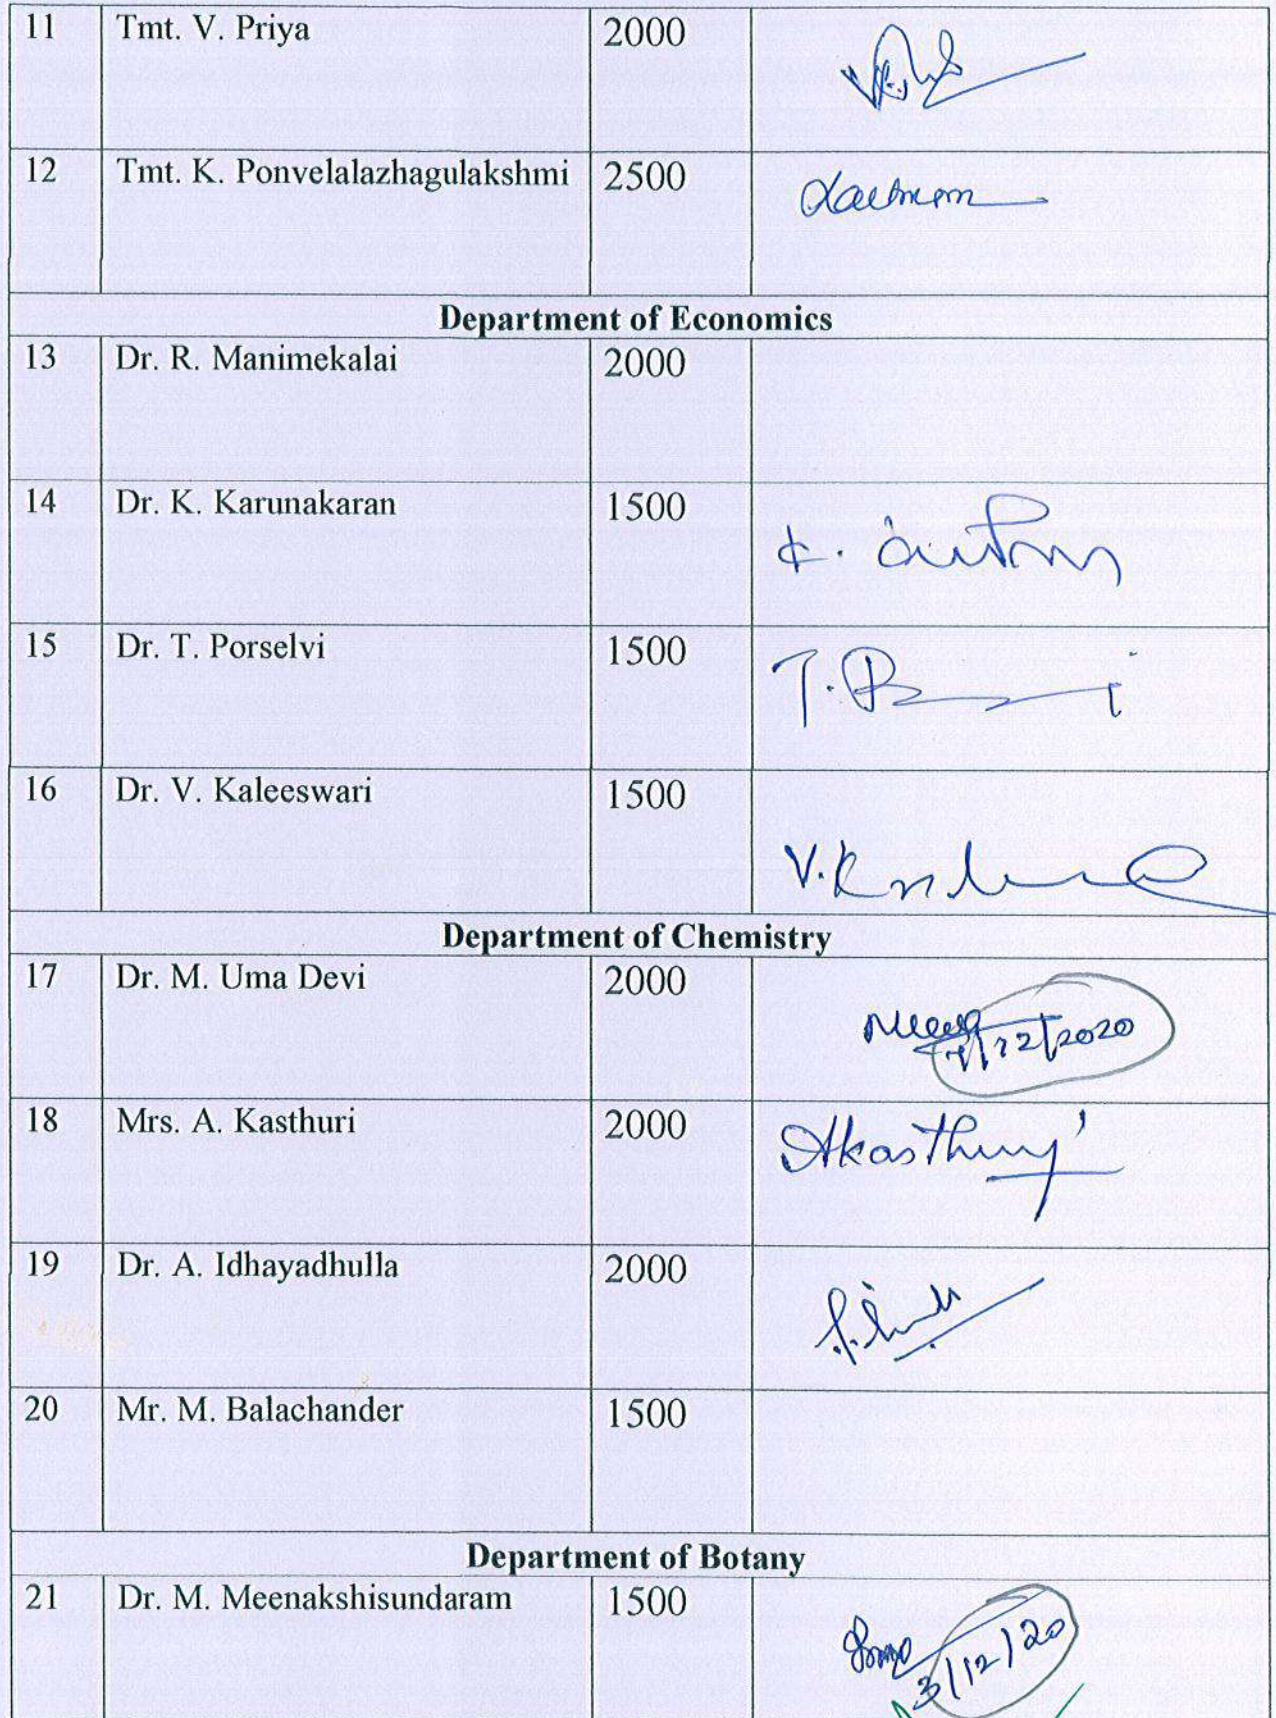 11 Tmt. V. Priya 2000
12 Tmt. K. Ponvelalazhagulakshmi 2500
Department of Economics
13 Dr. R. Manimekalai 2000
14 Dr. K. Karunakaran 1500
15 Dr. T. Porselvi 1500 T.P
16 Dr. V. Kaleeswari 1500 V.K
Department of Chemistry
17 Dr. M. Uma Devi 2000 /12/2020
18 Mrs. A. Kasthuri 2000 AKasthuri
19 Dr. A. Idhayadhulla 2000
20 Mr. M. Balachander 1500
Department of Botany
21 Dr. M. Meenakshisundaram 1500 3/12/20